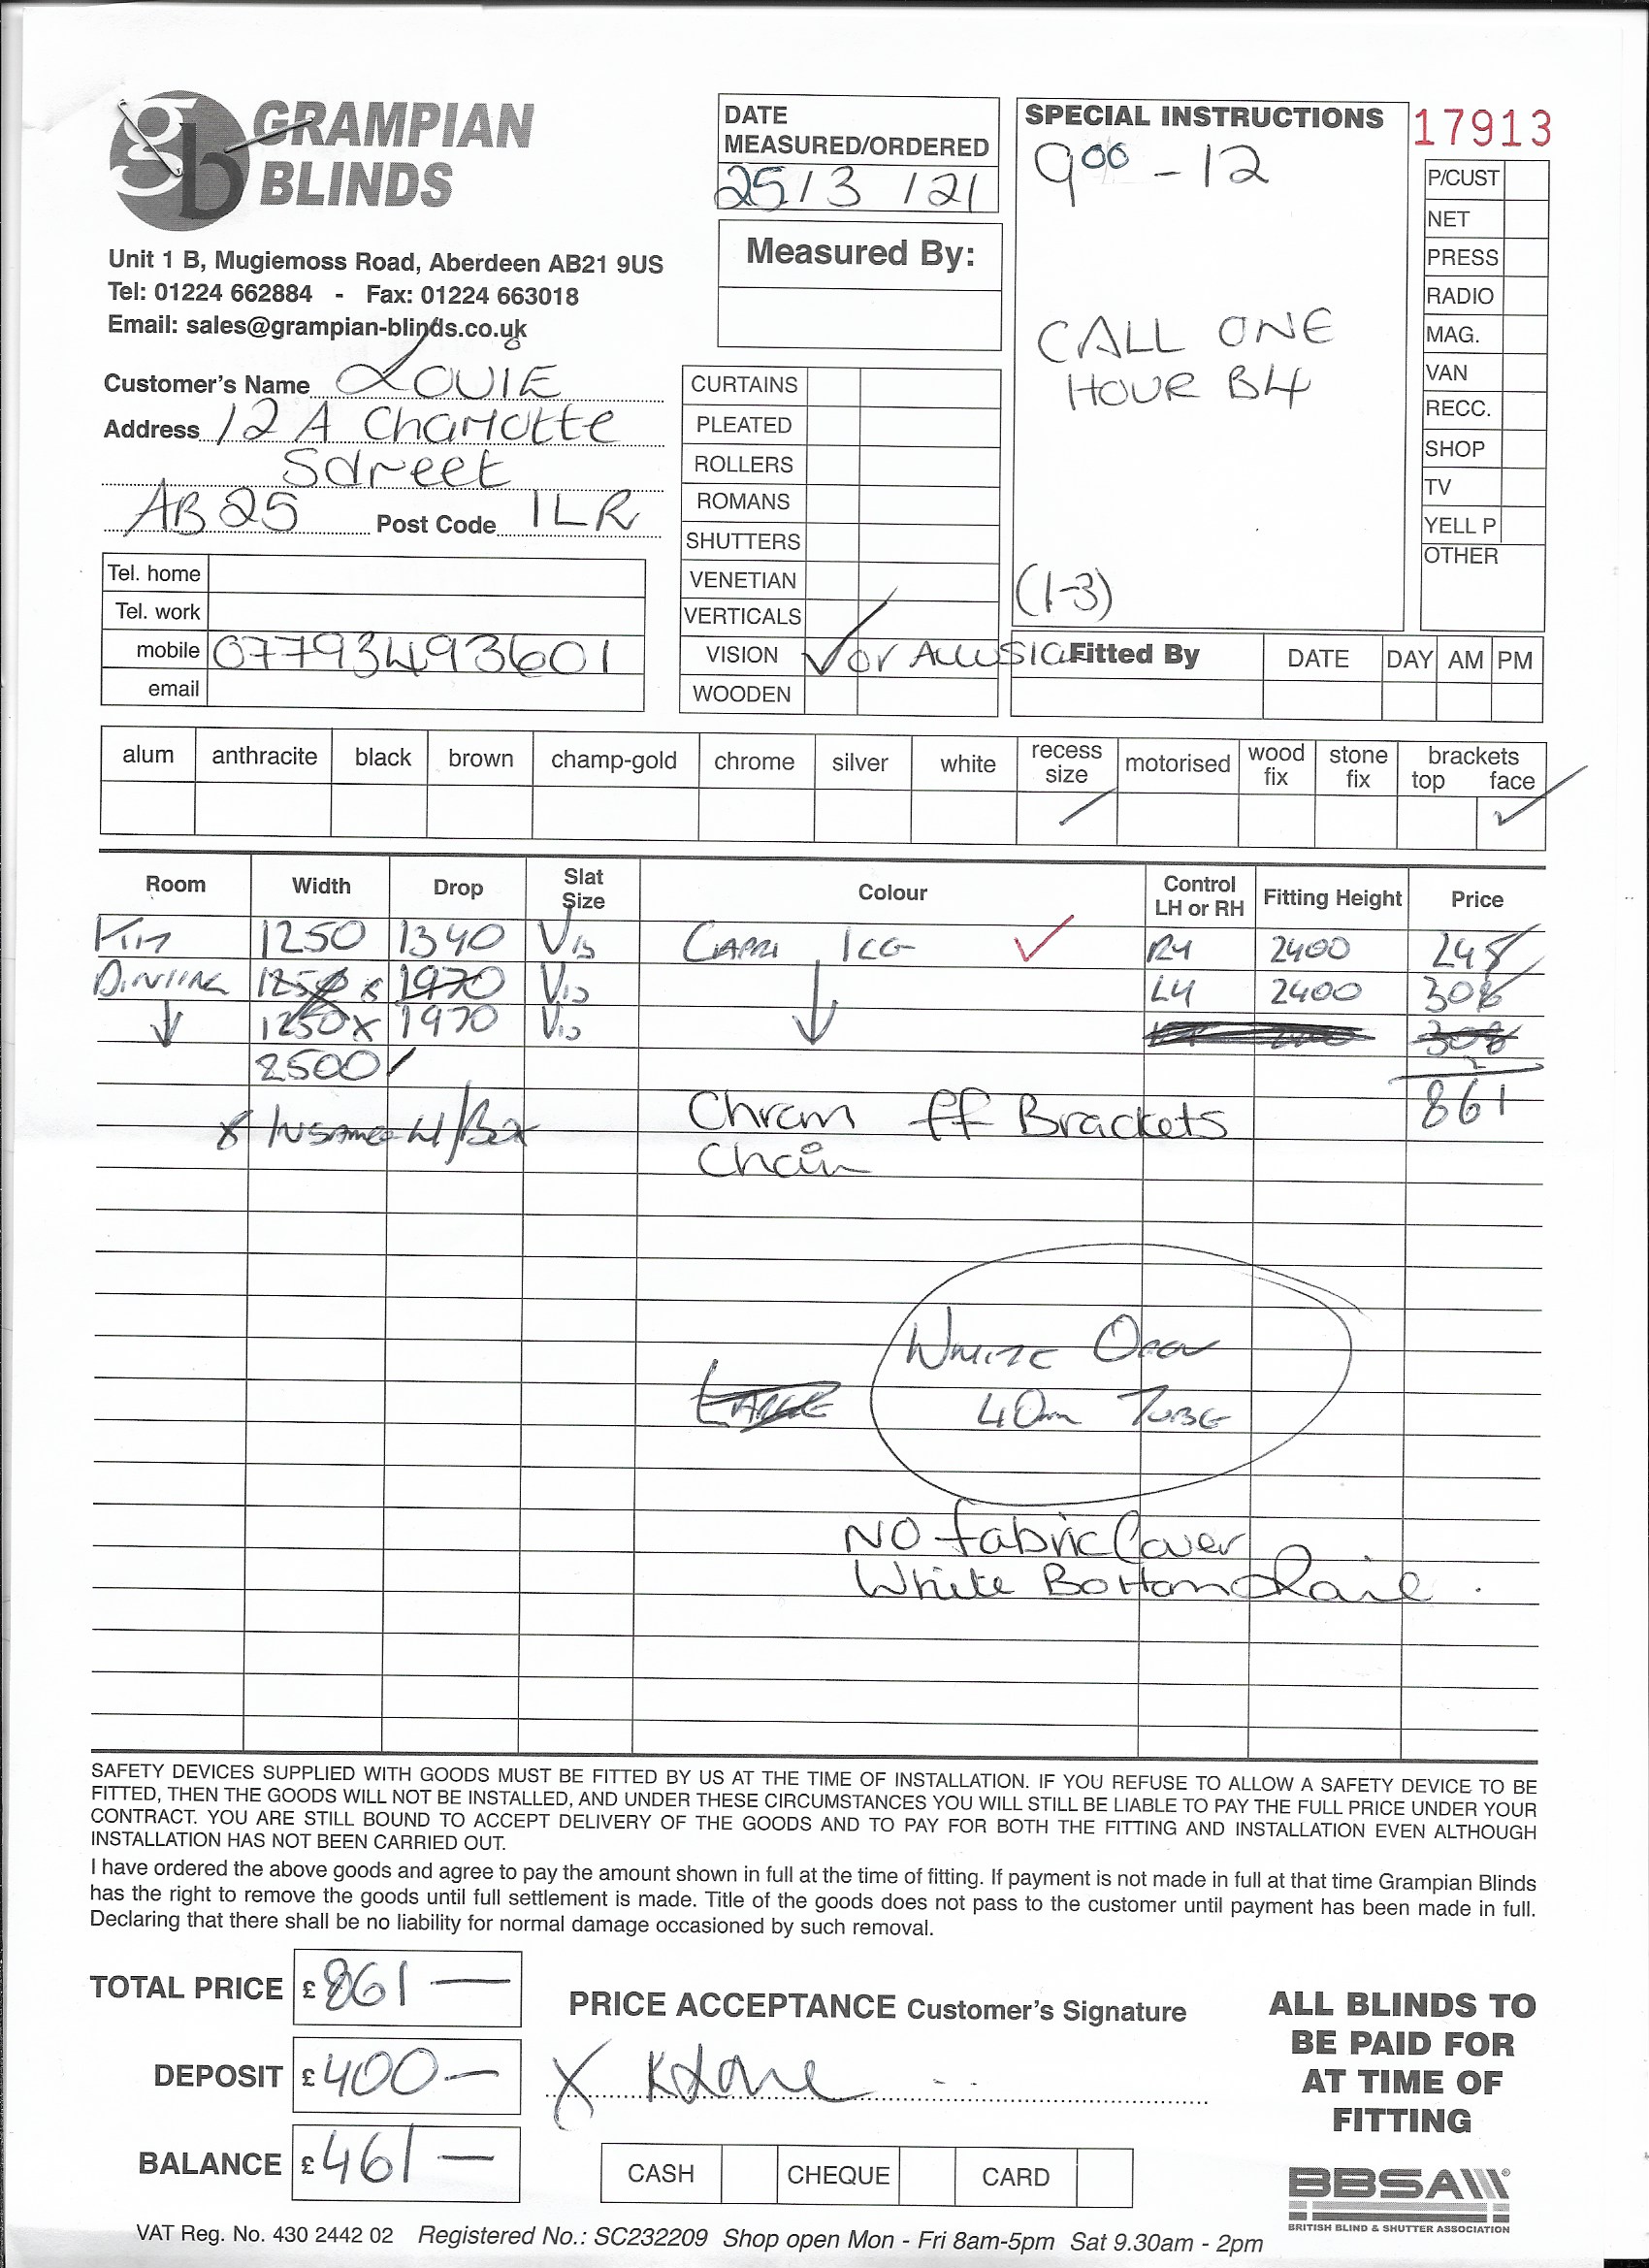 gb GRAMPIAN BLINDS
Unit 1 B, Mugiemoss Road, Aberdeen AB21 9US
Tel: 01224 662884 - Fax: 01224 663018
Email: sales@grampian-blinds.co.uk
DATE MEASURED/ORDERED
25/3/21
Measured By:
SPECIAL INSTRUCTIONS
9 00 - 12
CALL ONE
HOUR B4
(1-3)
17913
P/CUST
NET
PRESS
RADIO
MAG.
VAN
RECC.
SHOP
TV
YELL P
OTHER
Customer's Name LOUIE
Address 12 A Charlotte
Sdreet
AB25 Post Code 1LR
Tel. home
Tel. work
mobile 07793493601
email
CURTAINS
PLEATED
ROLLERS
ROMANS
SHUTTERS
VENETIAN
VERTICALS
VISION ✓ or
WOODEN
Fitted By DATE DAY AM PM
alum anthracite black brown champ-gold chrome silver white recess size motorised wood fix stone fix brackets top face
✓
Room Width Drop Slat Size Colour Control LH or RH Fitting Height Price
KIT 1250 1340 VIS CAPRI ICE ✓ RH 2400 248
1250 x 1970 VIS LH 2400
1250 x 1970 VIS
2500
861
Chrom ff Brackets
Chain
WHITE OPEN
40mm TUBE
NO fabric Cover
White Bottom Rail
SAFETY DEVICES SUPPLIED WITH GOODS MUST BE FITTED BY US AT THE TIME OF INSTALLATION. IF YOU REFUSE TO ALLOW A SAFETY DEVICE TO BE
FITTED, THEN THE GOODS WILL NOT BE INSTALLED, AND UNDER THESE CIRCUMSTANCES YOU WILL STILL BE LIABLE TO PAY THE FULL PRICE UNDER YOUR
CONTRACT. YOU ARE STILL BOUND TO ACCEPT DELIVERY OF THE GOODS AND TO PAY FOR BOTH THE FITTING AND INSTALLATION EVEN ALTHOUGH
INSTALLATION HAS NOT BEEN CARRIED OUT.
I have ordered the above goods and agree to pay the amount shown in full at the time of fitting. If payment is not made in full at that time Grampian Blinds
has the right to remove the goods until full settlement is made. Title of the goods does not pass to the customer until payment has been made in full.
Declaring that there shall be no liability for normal damage occasioned by such removal.
TOTAL PRICE £861—
DEPOSIT £400—
BALANCE £461—
PRICE ACCEPTANCE Customer's Signature
X
CASH CHEQUE CARD
ALL BLINDS TO
BE PAID FOR
AT TIME OF
FITTING
BBSA
BRITISH BLIND & SHUTTER ASSOCIATION
VAT Reg. No. 430 2442 02 Registered No.: SC232209 Shop open Mon - Fri 8am-5pm Sat 9.30am - 2pm